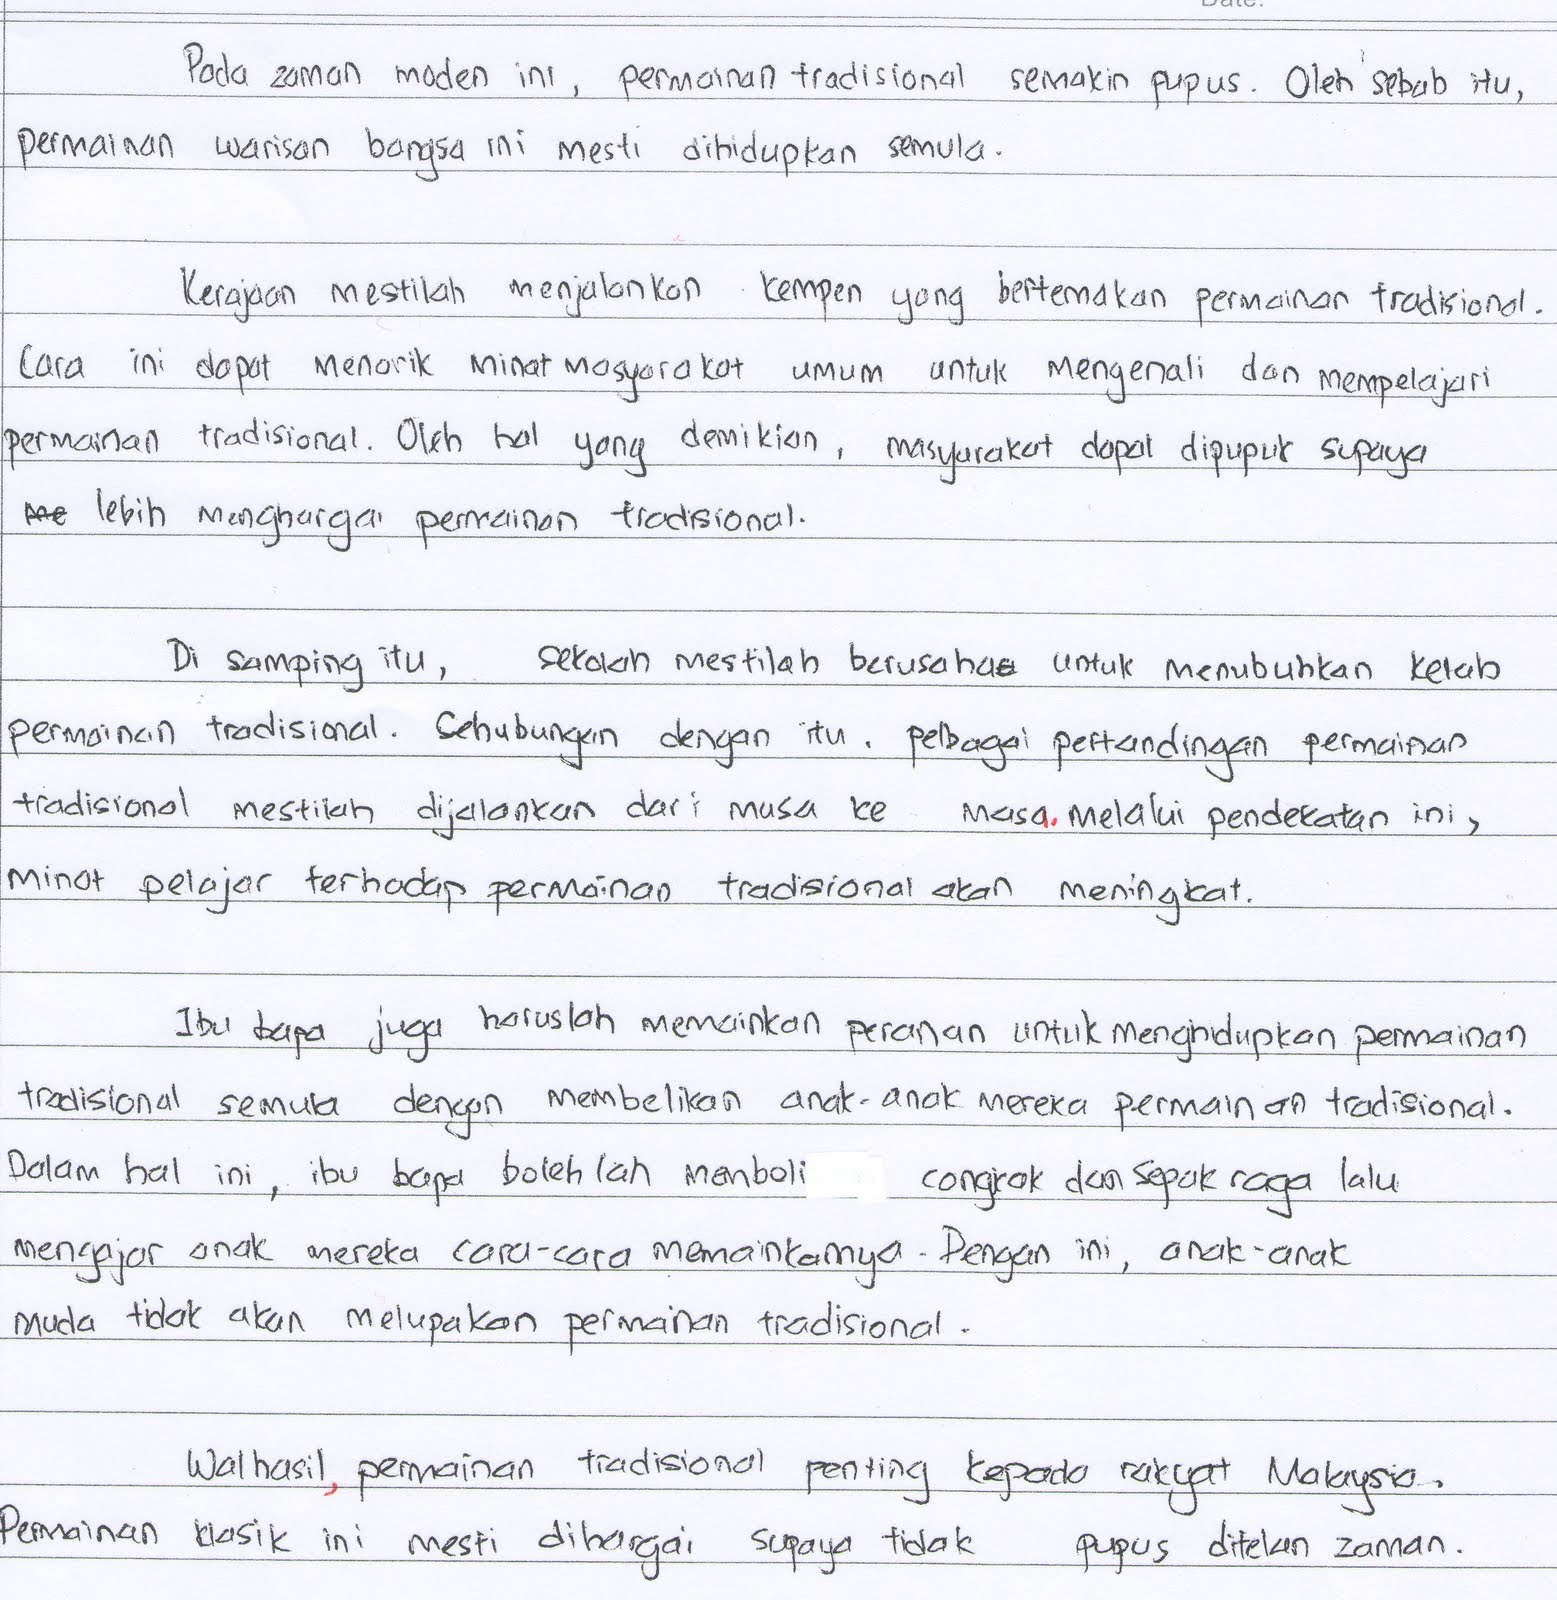 Date:
Pada zaman moden ini, permainan tradisional semakin pupus. Oleh sebab itu,
permainan warisan bangsa ini mesti dihidupkan semula.
Kerajaan mestilah menjalankan kempen yang bertemakan permainan tradisional.
Cara ini dapat menarik minat masyarakat umum untuk mengenali dan mempelajari
permainan tradisional. Oleh hal yang demikian, masyarakat dapat dipupuk supaya
lebih menghargai permainan tradisional.
Di samping itu, sekolah mestilah berusaha untuk menubuhkan kelab
permainan tradisional. Sehubungan dengan itu, pelbagai pertandingan permainan
tradisional mestilah dijalankan dari masa ke masa. Melalui pendekatan ini,
minat pelajar terhadap permainan tradisional akan meningkat.
Ibu bapa juga haruslah memainkan peranan untuk menghidupkan permainan
tradisional semula dengan membelikan anak-anak mereka permainan tradisional.
Dalam hal ini, ibu bapa bolehlah menboli congkak dan sepak raga lalu
mengajar anak mereka cara-cara memainkannya. Dengan ini, anak-anak
muda tidak akan melupakan permainan tradisional.
Walhasil, permainan tradisional penting kepada rakyat Malaysia.
Permainan klasik ini mesti dihargai supaya tidak pupus ditelan zaman.